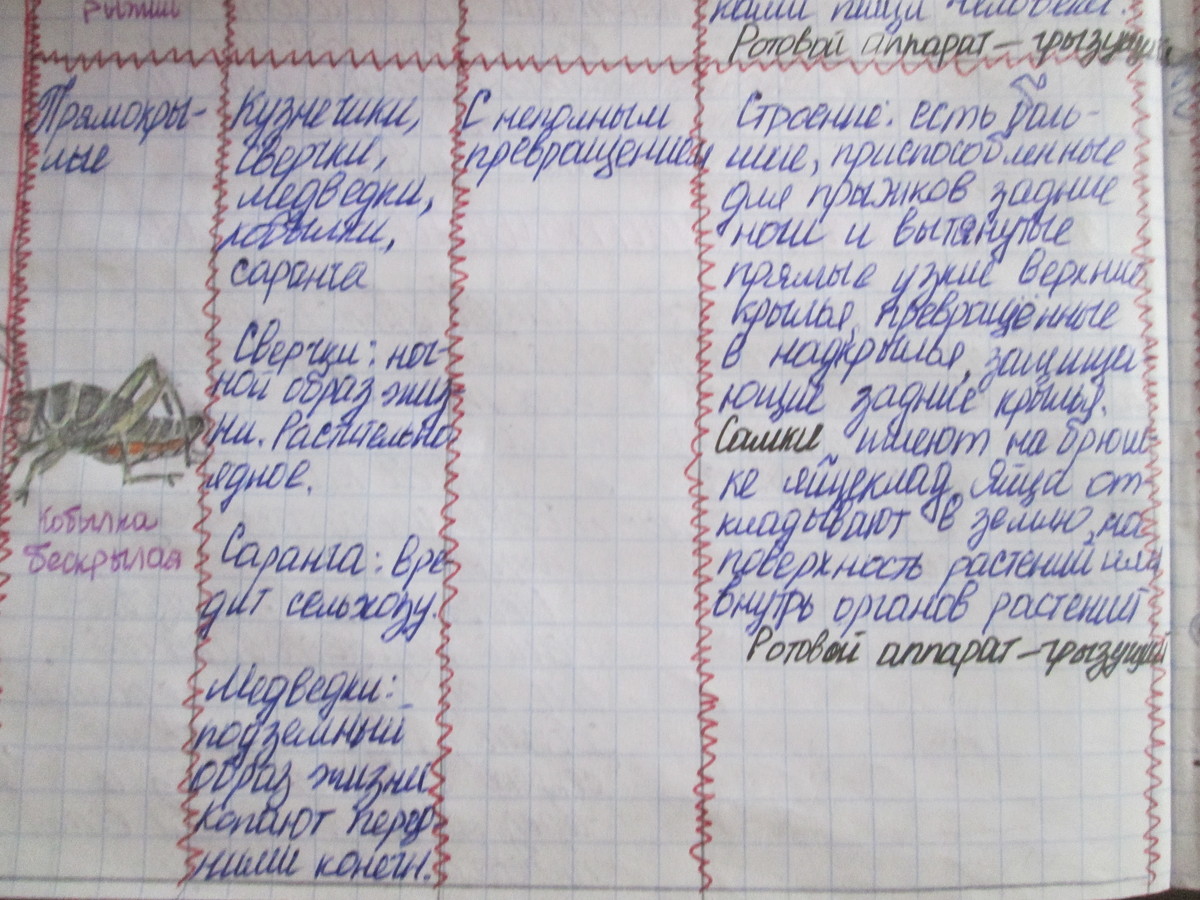 рыжий
ками пищи человека.
Ротовой аппарат – грызущий
Прямокры-
лые
Кобылка
бескрылая
Кузнечики,
сверчки,
медведки,
кобылки,
саранча
Сверчки: ноч-
ной образ жиз-
ни. Растительно
ядное.
Саранча: вре-
дит сельхозу.
Медведки:
подземный
образ жизни
копают перед-
ними конечн.
С неполным
превращением
Строение: есть боль-
шие, приспособленные
для прыжков задние
ноги и вытянутые
прямые узкие верхние
крылья, превращённые
в надкрылья, защища
ющие задние крылья.
Самки имеют на брюш-
ке яйцеклад. Яйца от-
кладывают в землю, на
поверхность растений или
внутрь органов растений
Ротовой аппарат – грызущий